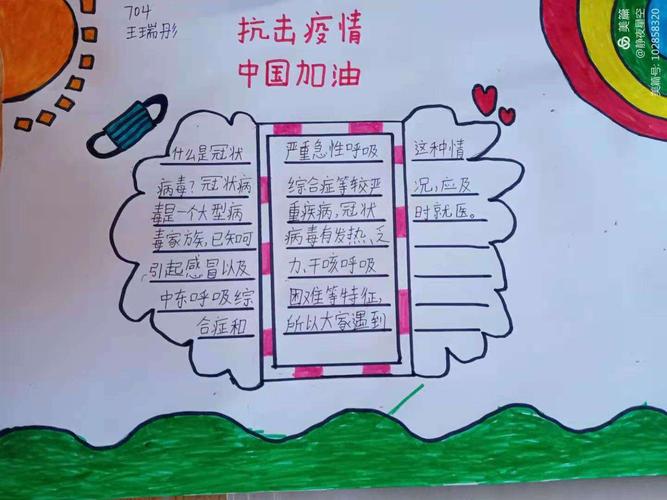 704
王瑞彤
抗击疫情
中国加油
什么是冠状
病毒?冠状病
毒是一个大型病
毒家族,已知可
引起感冒以及
中东呼吸综
合症和
严重急性呼吸
综合症等较严
重疾病,冠状
病毒有发热、乏
力、干咳呼吸
困难等特征,
所以大家遇到
这种情
况,应及
时就医。
美篇
@静夜星空
美篇号: 102858320